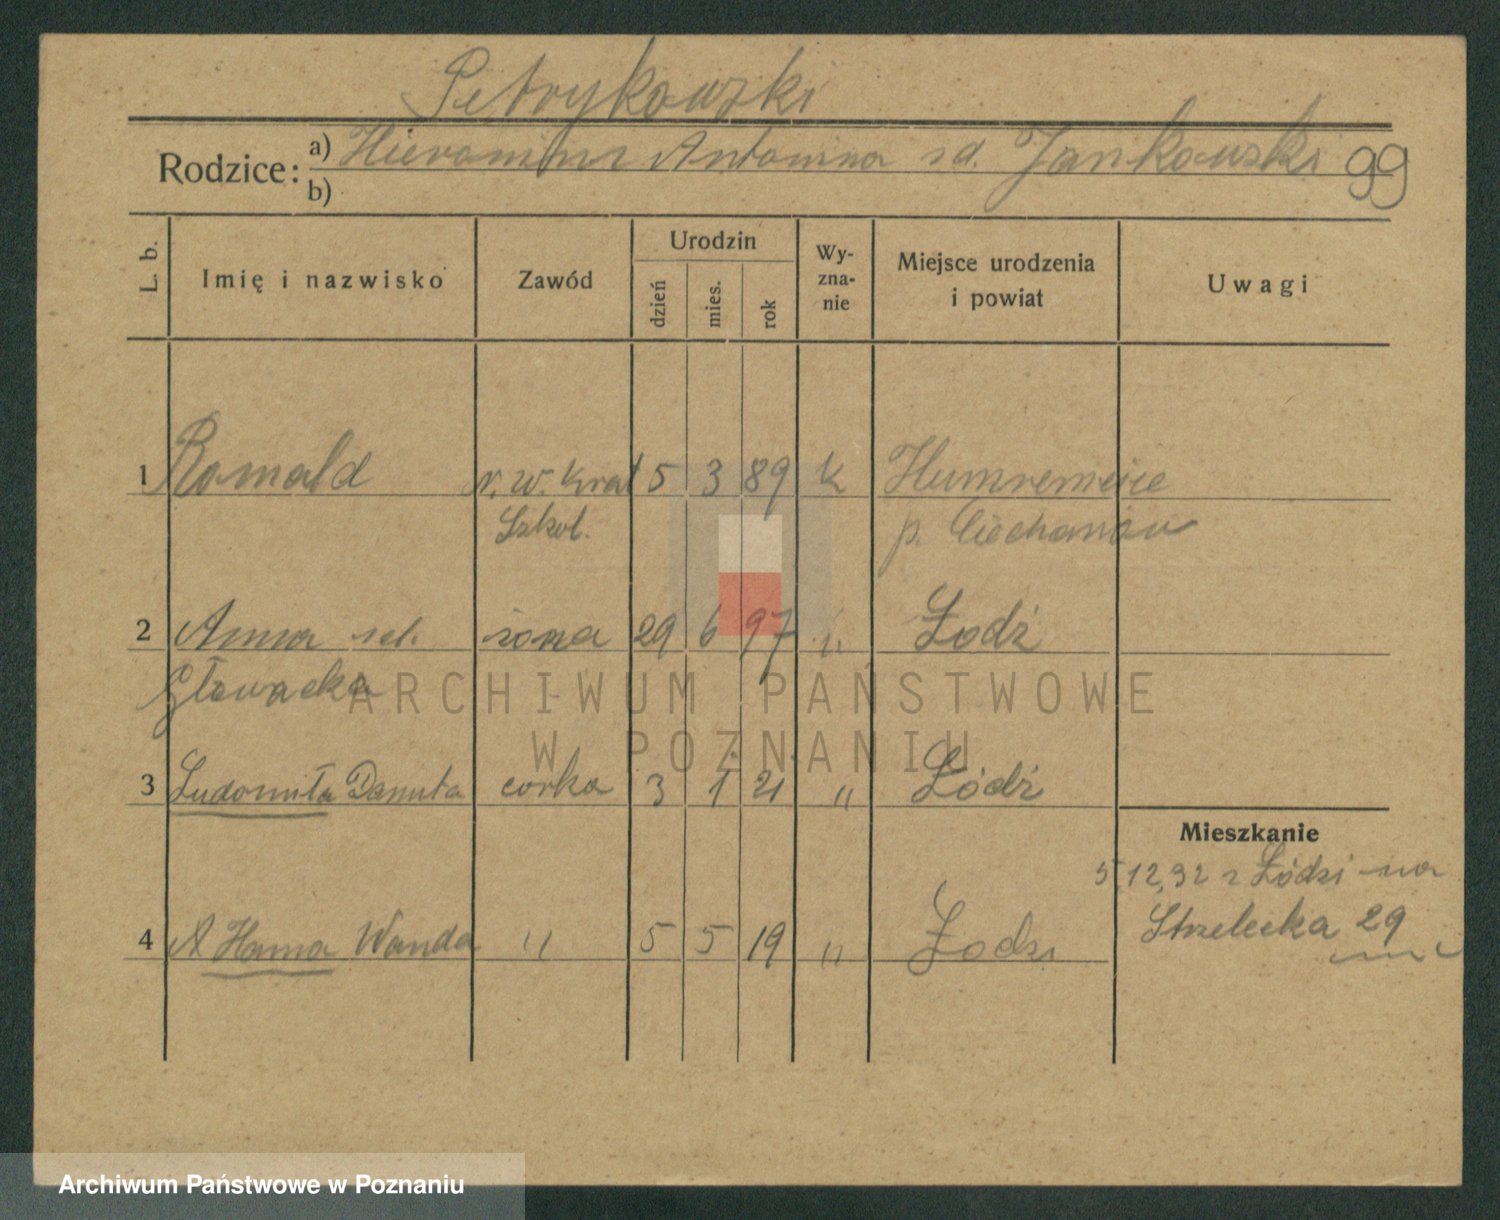 Petrykowski
Rodzice: a) Hieronim Antonina sd. Jankowski 99
b)
L. b. Imię i nazwisko Zawód Urodzin dzień mies. rok Wy-zna-nie Miejsce urodzenia i powiat Uwagi
1 Romald 5 3 89 k
Szkol. p. Ciechanów
2 Anna żona 29 6 97 " Łodź
Głowacka
3 Ludomiła Danuta corka 3 1 21 " Łódź
Mieszkanie
5.12.32 z Łódzi na
4 Hanna Wanda " 5 5 19 " Łodzi Strzelecka 29
ARCHIWUM PAŃSTWOWE
W POZNANIU
Archiwum Państwowe w Poznaniu